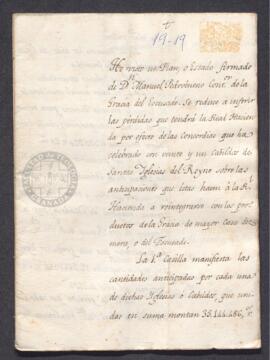 †
19-19
He visto un Plan, o Estado firmado
de Dn Manuel Pedroueno Contor de la
Gracia del Escusado. Se reduce a inferir
las pérdidas que tendrá la Real Hacien
da por efecto de las Concordias que ha
celebrado con veinte y un Cabildos de
Santas Iglesias del Reyno sobre las
anticipaciones que estas hacen à la Rl
Hacienda a reintegrarse con los pro
ductos de la Gracia de mayor Casa diez
mera, o del Escusado.
La 1.a Casilla manifiesta las
cantidades anticipadas por cada una
de dichas Iglesias o Cabildos, que uni
das en suma montan 38.144.486,